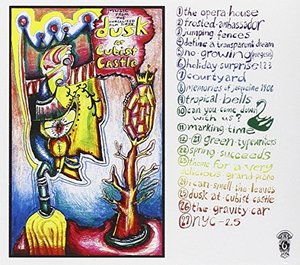 music from the
unrealized
film script
dusk
at
Cubist
Castle
1 the opera house
2 frosted ambassador
3 jumping fences
4 define a transparent dream
5 no growing (exegesis)
6 holiday surprise 123
7 courtyard
8 memories of jaqueline 1906
9 tropical bells
10 can you come down
with us?
11 marking time
12-21 green typewriters
22 spring succeeds
23 theme for a very
delicious grand piano
24 i can smell the leaves
25 dusk at cubist castle
26 the gravity car
27 NYC-25